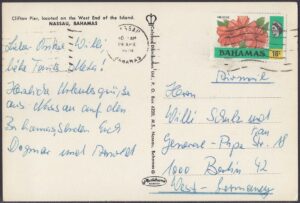 Clifton Pier, located on the West End of the Island.
NASSAU, BAHAMAS
Lieber Onkel Willi
liebe Tante
Herzliche Urlaubsgrüße
aus Nassau auf den
Bahamas senden Euch
Dagmar und
NASSAU
BAHAMAS
HIBISCUS
BAHAMAS
16c
Airmail
Herrn
Willi Schulz und
Frau
General-Pape-Str. 18
1000 Berlin 42
West-Germany